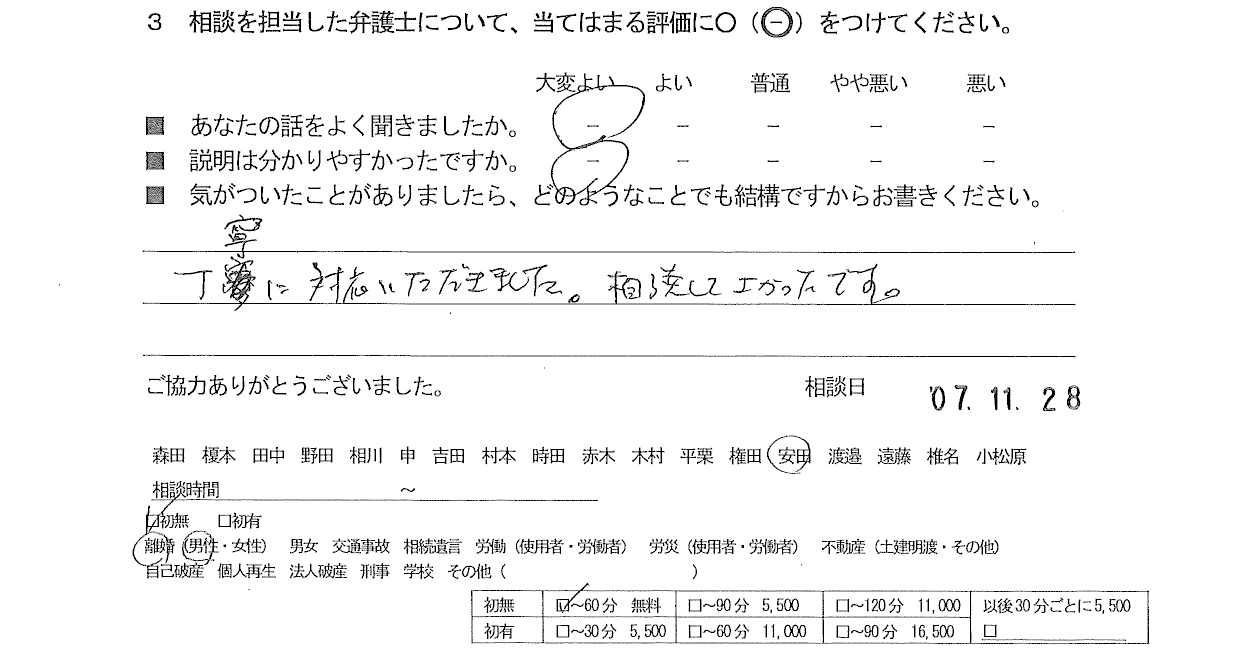 3 相談を担当した弁護士について、当てはまる評価に○（㊀）をつけてください。
大変よい よい 普通 やや悪い 悪い
■ あなたの話をよく聞きましたか。 － － － － －
■ 説明は分かりやすかったですか。 － － － － －
■ 気がついたことがありましたら、どのようなことでも結構ですからお書きください。
寧
丁寧に対応いただきました。相談してよかったです。
ご協力ありがとうございました。 相談日 '07.11.28
森田 榎本 田中 野田 相川 申 吉田 村本 時田 赤木 木村 平栗 権田 安田 渡邉 遠藤 椎名 小松原
相談時間 ～
□初無 □初有
離婚（男性・女性） 男女 交通事故 相続遺言 労働（使用者・労働者） 労災（使用者・労働者） 不動産（土建明渡・その他）
自己破産 個人再生 法人破産 刑事 学校 その他（ ）
初無 ☑～60分 無料 □～90分 5,500 □～120分 11,000 以後30分ごとに5,500
初有 □～30分 5,500 □～60分 11,000 □～90分 16,500 □